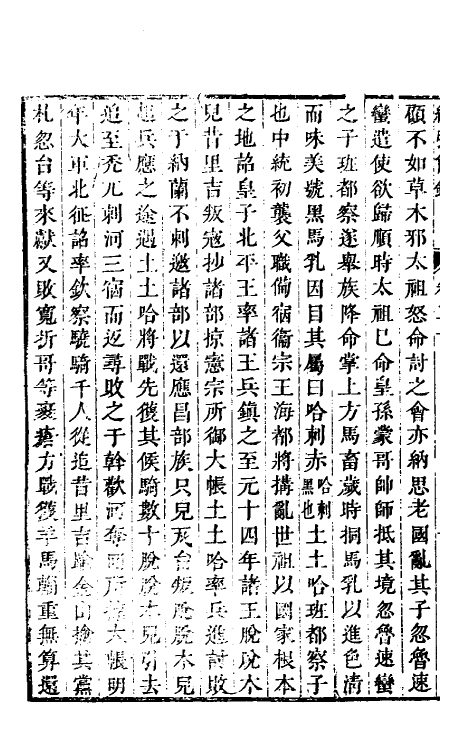 顧不如草木邪太祖怒命討之會亦納思老國亂其子忽魯速
蠻遣使欲歸順時太祖已命皇孫蒙哥帥師抵其境忽魯速蠻
之子班都察遂舉族降命掌上方馬畜歲時挏馬乳以進色清
而味美號黑馬乳因目其屬曰哈剌赤哈剌黑也土土哈班都察子
也中統初襲父職備宿衞宗王海都將搆亂世祖以國家根本
之地詔皇子北平王率諸王兵鎮之至元十四年諸王脫脫木
兒昔里吉叛寇抄諸部掠憲宗所御大帳土土哈率兵進討敗
之于納蘭不剌邀諸部以還應昌部族只兒瓦台叛脫脫木兒
兵應之途遇土土哈將戰先獲其候騎數十脫脫木兒引去
追至禿兀剌河三宿而返尋敗之于斡歡河奪所大帳明
年大軍北征詔率欽察驍騎千人從追昔里吉踰金山擒其黨
札忽台等來獻又敗寬折哥等裹瘡方戰獲羊馬輜重無算還